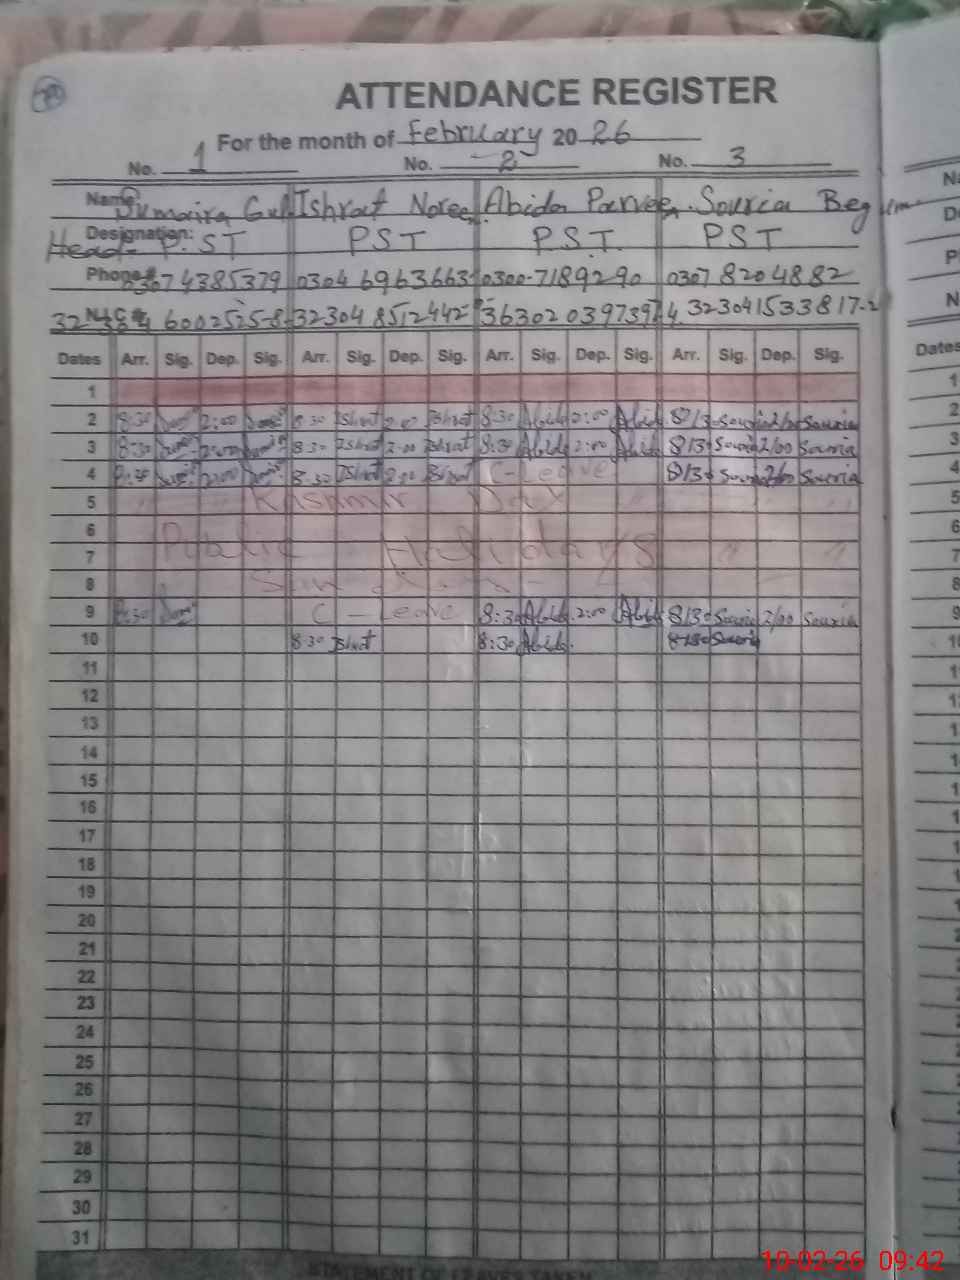 ATTENDANCE REGISTER
For the month of February 20 26
No. 1 No. 2 No. 3
Name Sumaira Gul Ishrat Noreen Abida Parveen Souria Begum
Designation: Head PST PST P.S.T. PST
Phone # 03074385379 0304 6963663 0300-7189290 0307 8204882
N.I.C # 32304 8512442 32304 1533817-2
Dates Arr. Sig. Dep. Sig. Arr. Sig. Dep. Sig. Arr. Sig. Dep. Sig. Arr. Sig. Dep. Sig.
1
2 8:30 2:00 8:30 Ishrat 2:00 Ishrat 8:30 Abida 2:00 Abida 8/30 Souria 2/00 Souria
3 8:30 2:00 8:30 Ishrat 2:00 Ishrat 8:30 Abida 2:00 Abida 8/30 Souria 2/00 Souria
4 8:30 2:00 8:30 Ishrat 2:00 Ishrat C-Leave 8/30 Souria 2/00 Souria
5 Kashmir Day
6
7 Public Holidays " "
8 Sunday
9 8:30 C-Leave 8:30 Abida 2:00 Abida 8/30 Souria 2/00 Souria
10 8:30 Ishrat 8:30 Abida. 8/30 Souria
11
12
13
14
15
16
17
18
19
20
21
22
23
24
25
26
27
28
29
30
31
STATEMENT OF LEAVES TAKEN
10-02-26 09:42